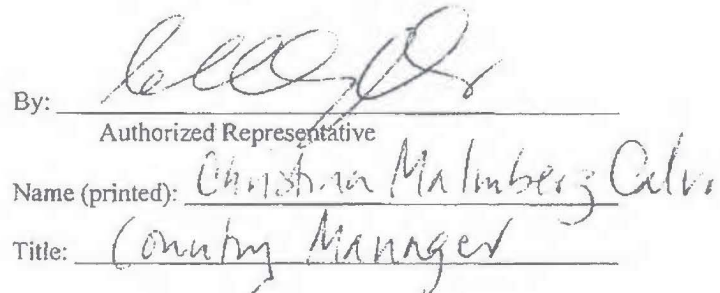 By:
Authorized Representative
Name (printed): Christina Malmberg Calvo
Title: Country Manager